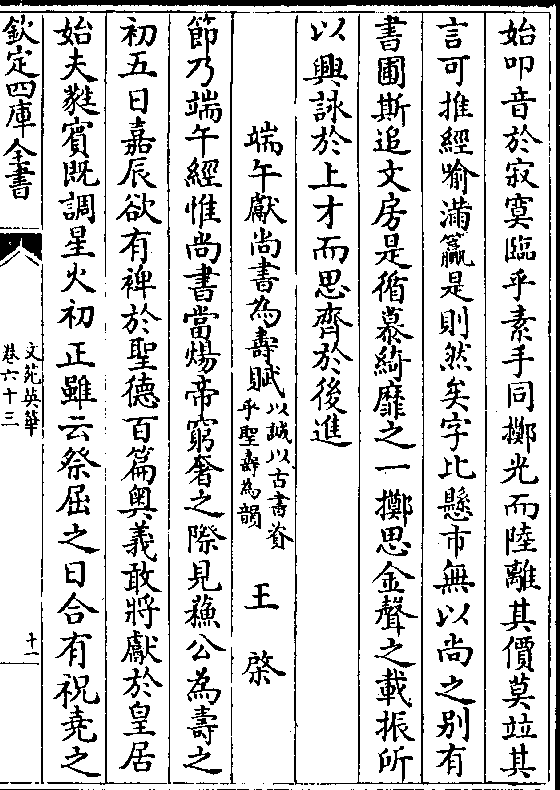 始叩音於寂寞臨乎素手同擲光而陸離其價莫竝其
言可推經喻滿籯是則然矣字比懸市無以尚之别有
書圃斯追文房是循慕綺靡之一擲思金聲之載振所
以興詠於上才而思齊於後進
端午獻尚書為壽賦以誠以古書資乎聖壽為韻 王棨
節乃端午經惟尚書當煬帝窮奢之際見蘓公為壽之
初五日嘉辰欲有裨於聖德百篇奥義敢將獻於皇居
始夫蕤賓既調星火初正雖云祭屈之日合有祝堯之
欽定四庫全書
文苑英華
卷六十三
十一